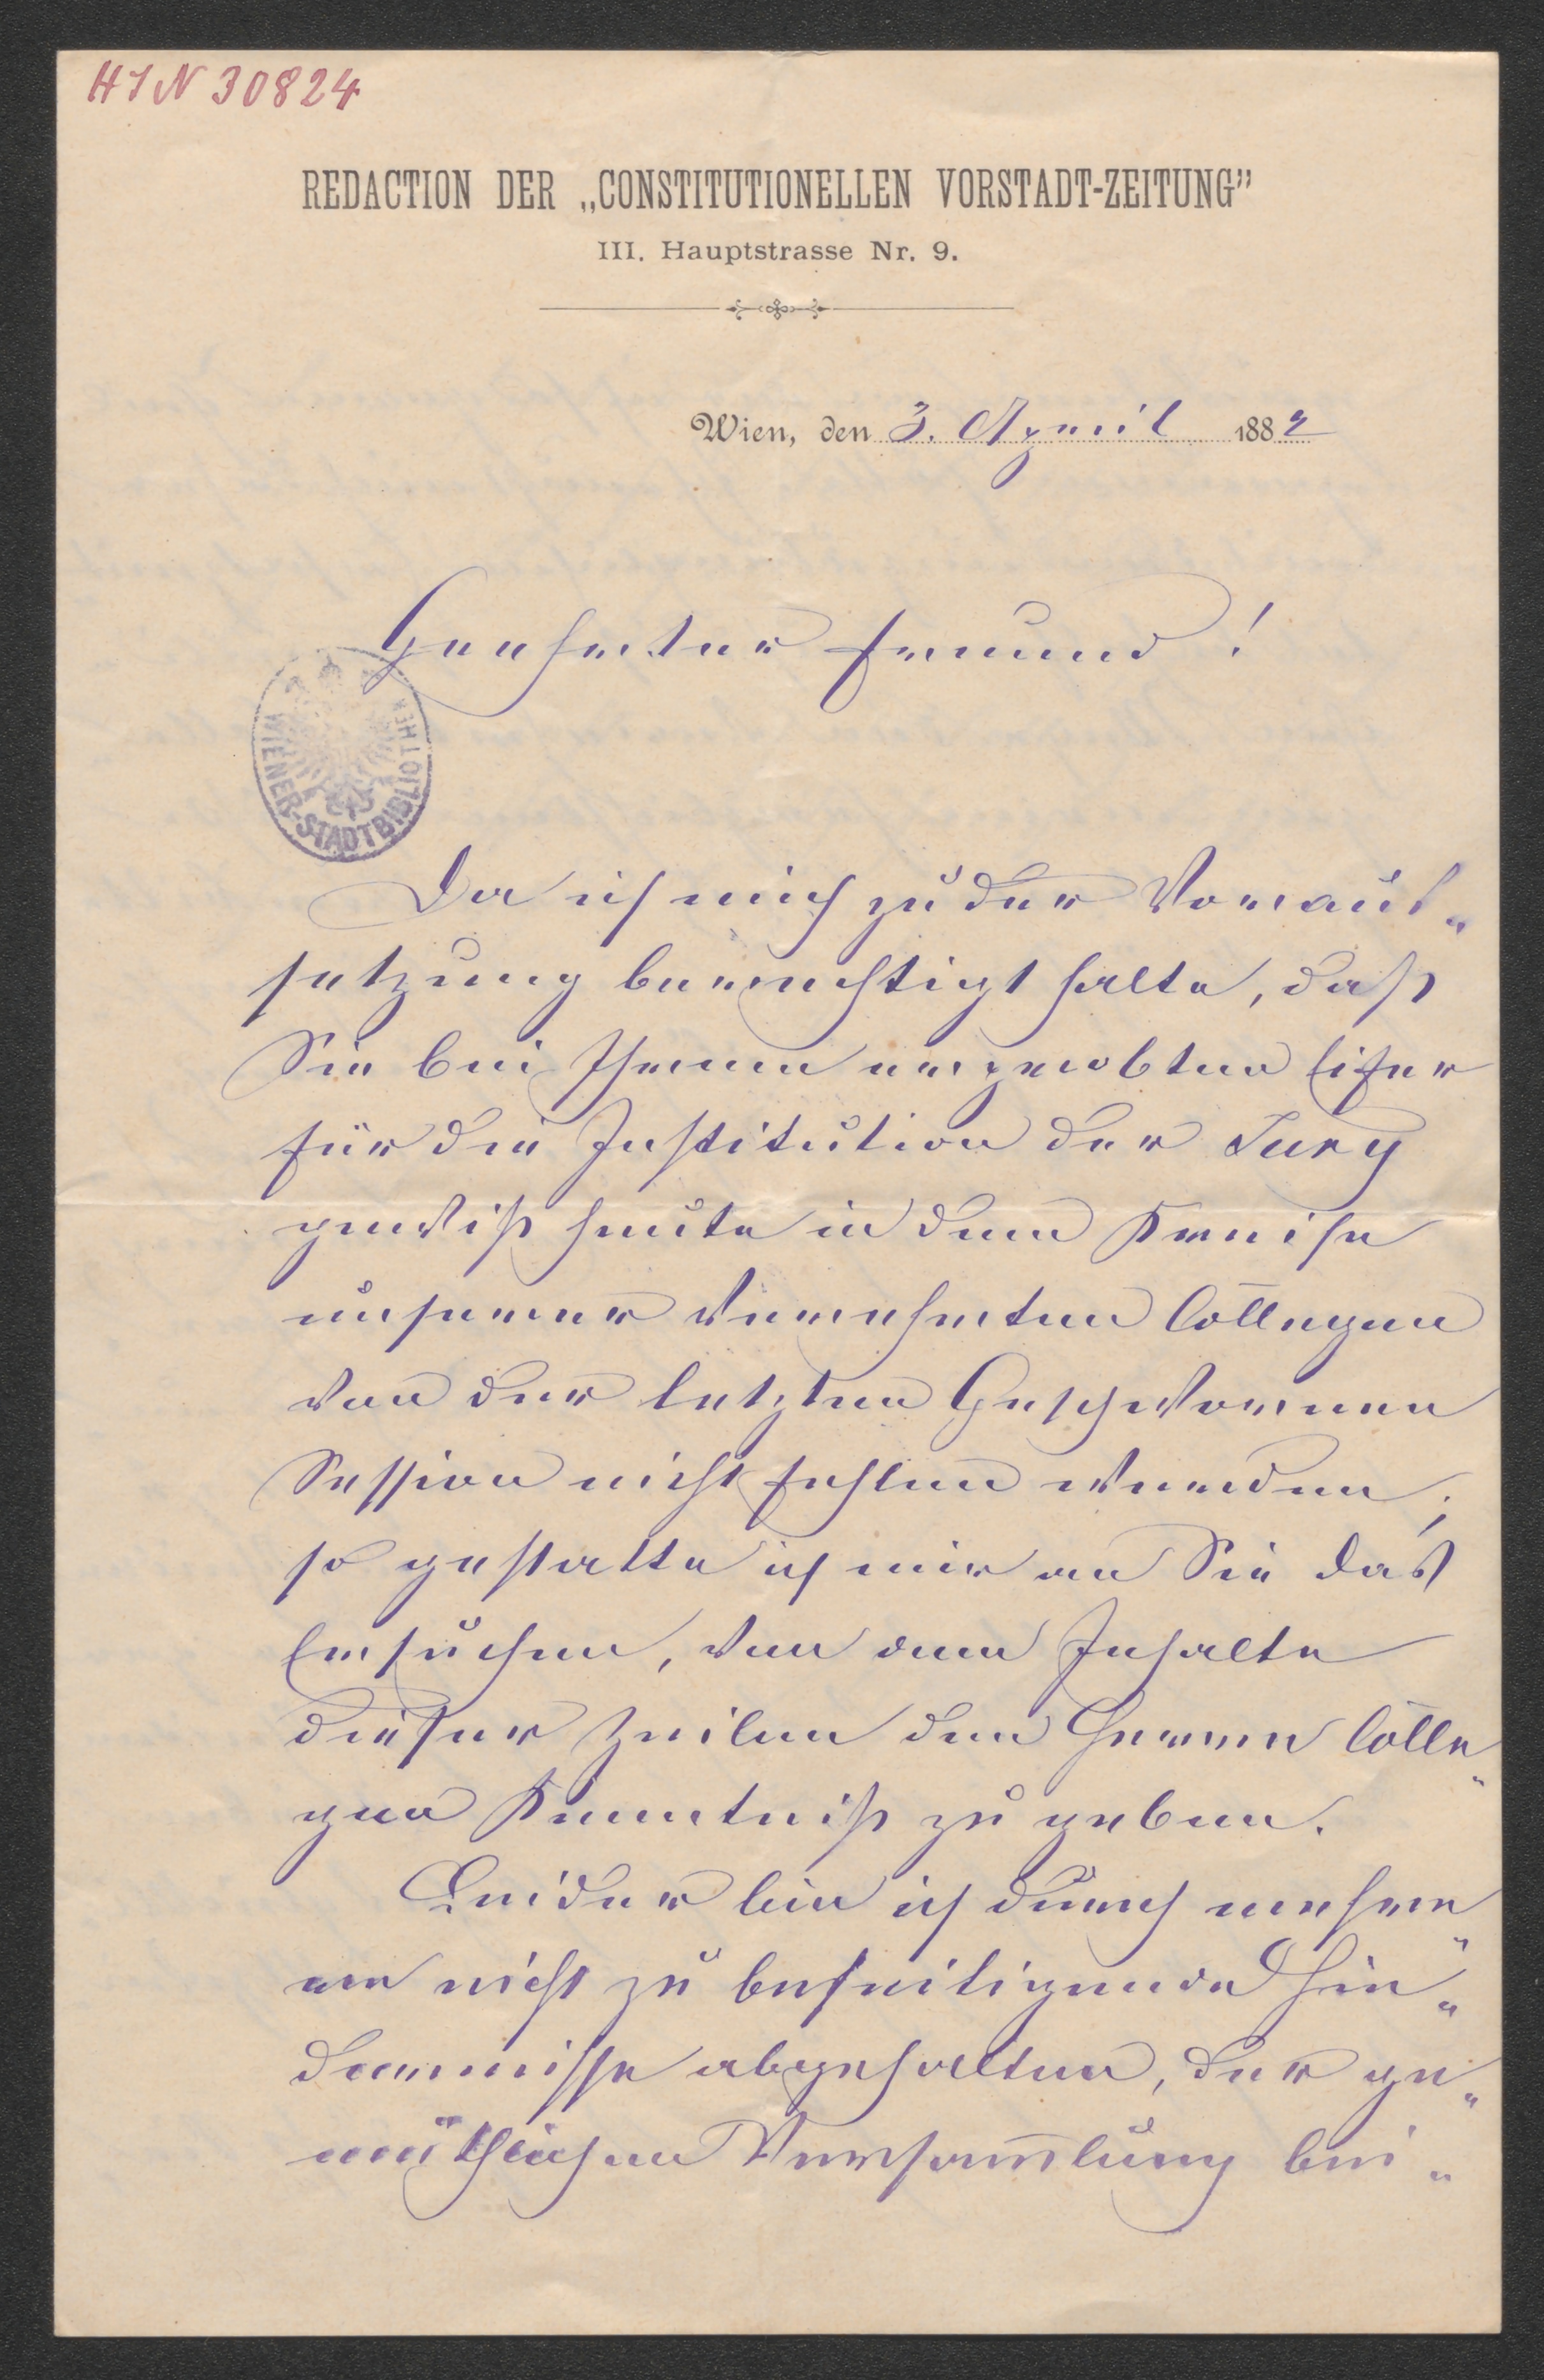 HIN 30824
REDACTION DER „CONSTITUTIONELLEN VORSTADT-ZEITUNG”
III. Hauptstrasse Nr. 9.
Wien, den 3. April 1882
Geehrter Freund!
WIENER-STADTBIBLIOTHEK
Da ich mich zu der Voraus-
setzung berechtigt halte, daß
Sie bei Ihrem erprobten Eifer
für die Institution der Jury
gewiß heute in dem Kreise
unserer verehrten Collegen
von der letzten Geschwornen
Session nicht fehlen werden,
so gestatte ich mir an Sie das
Ersuchen, von dem Inhalte
dieser Zeilen den Herren Colle-
gen Kenntniß zu geben.
Leider bin ich durch mehre-
re nicht zu beseitigende Hin-
dernisse abgehalten, der ge-
müthlichen Versam̅lung bei-